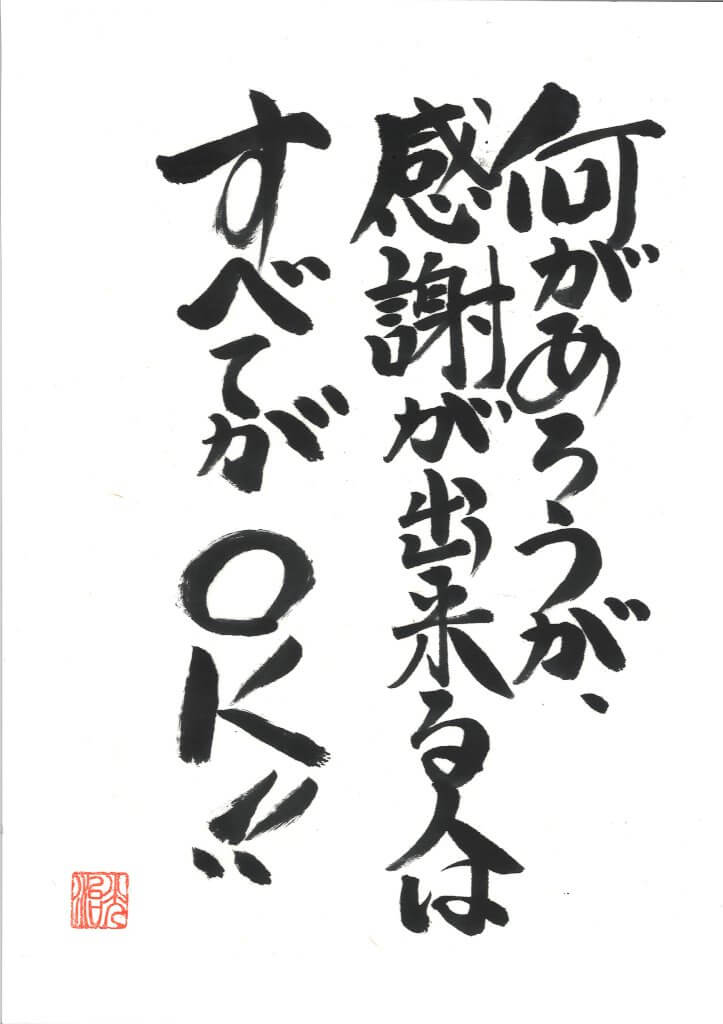 何があろうが、
感謝が出来る人は
すべてがOK!!